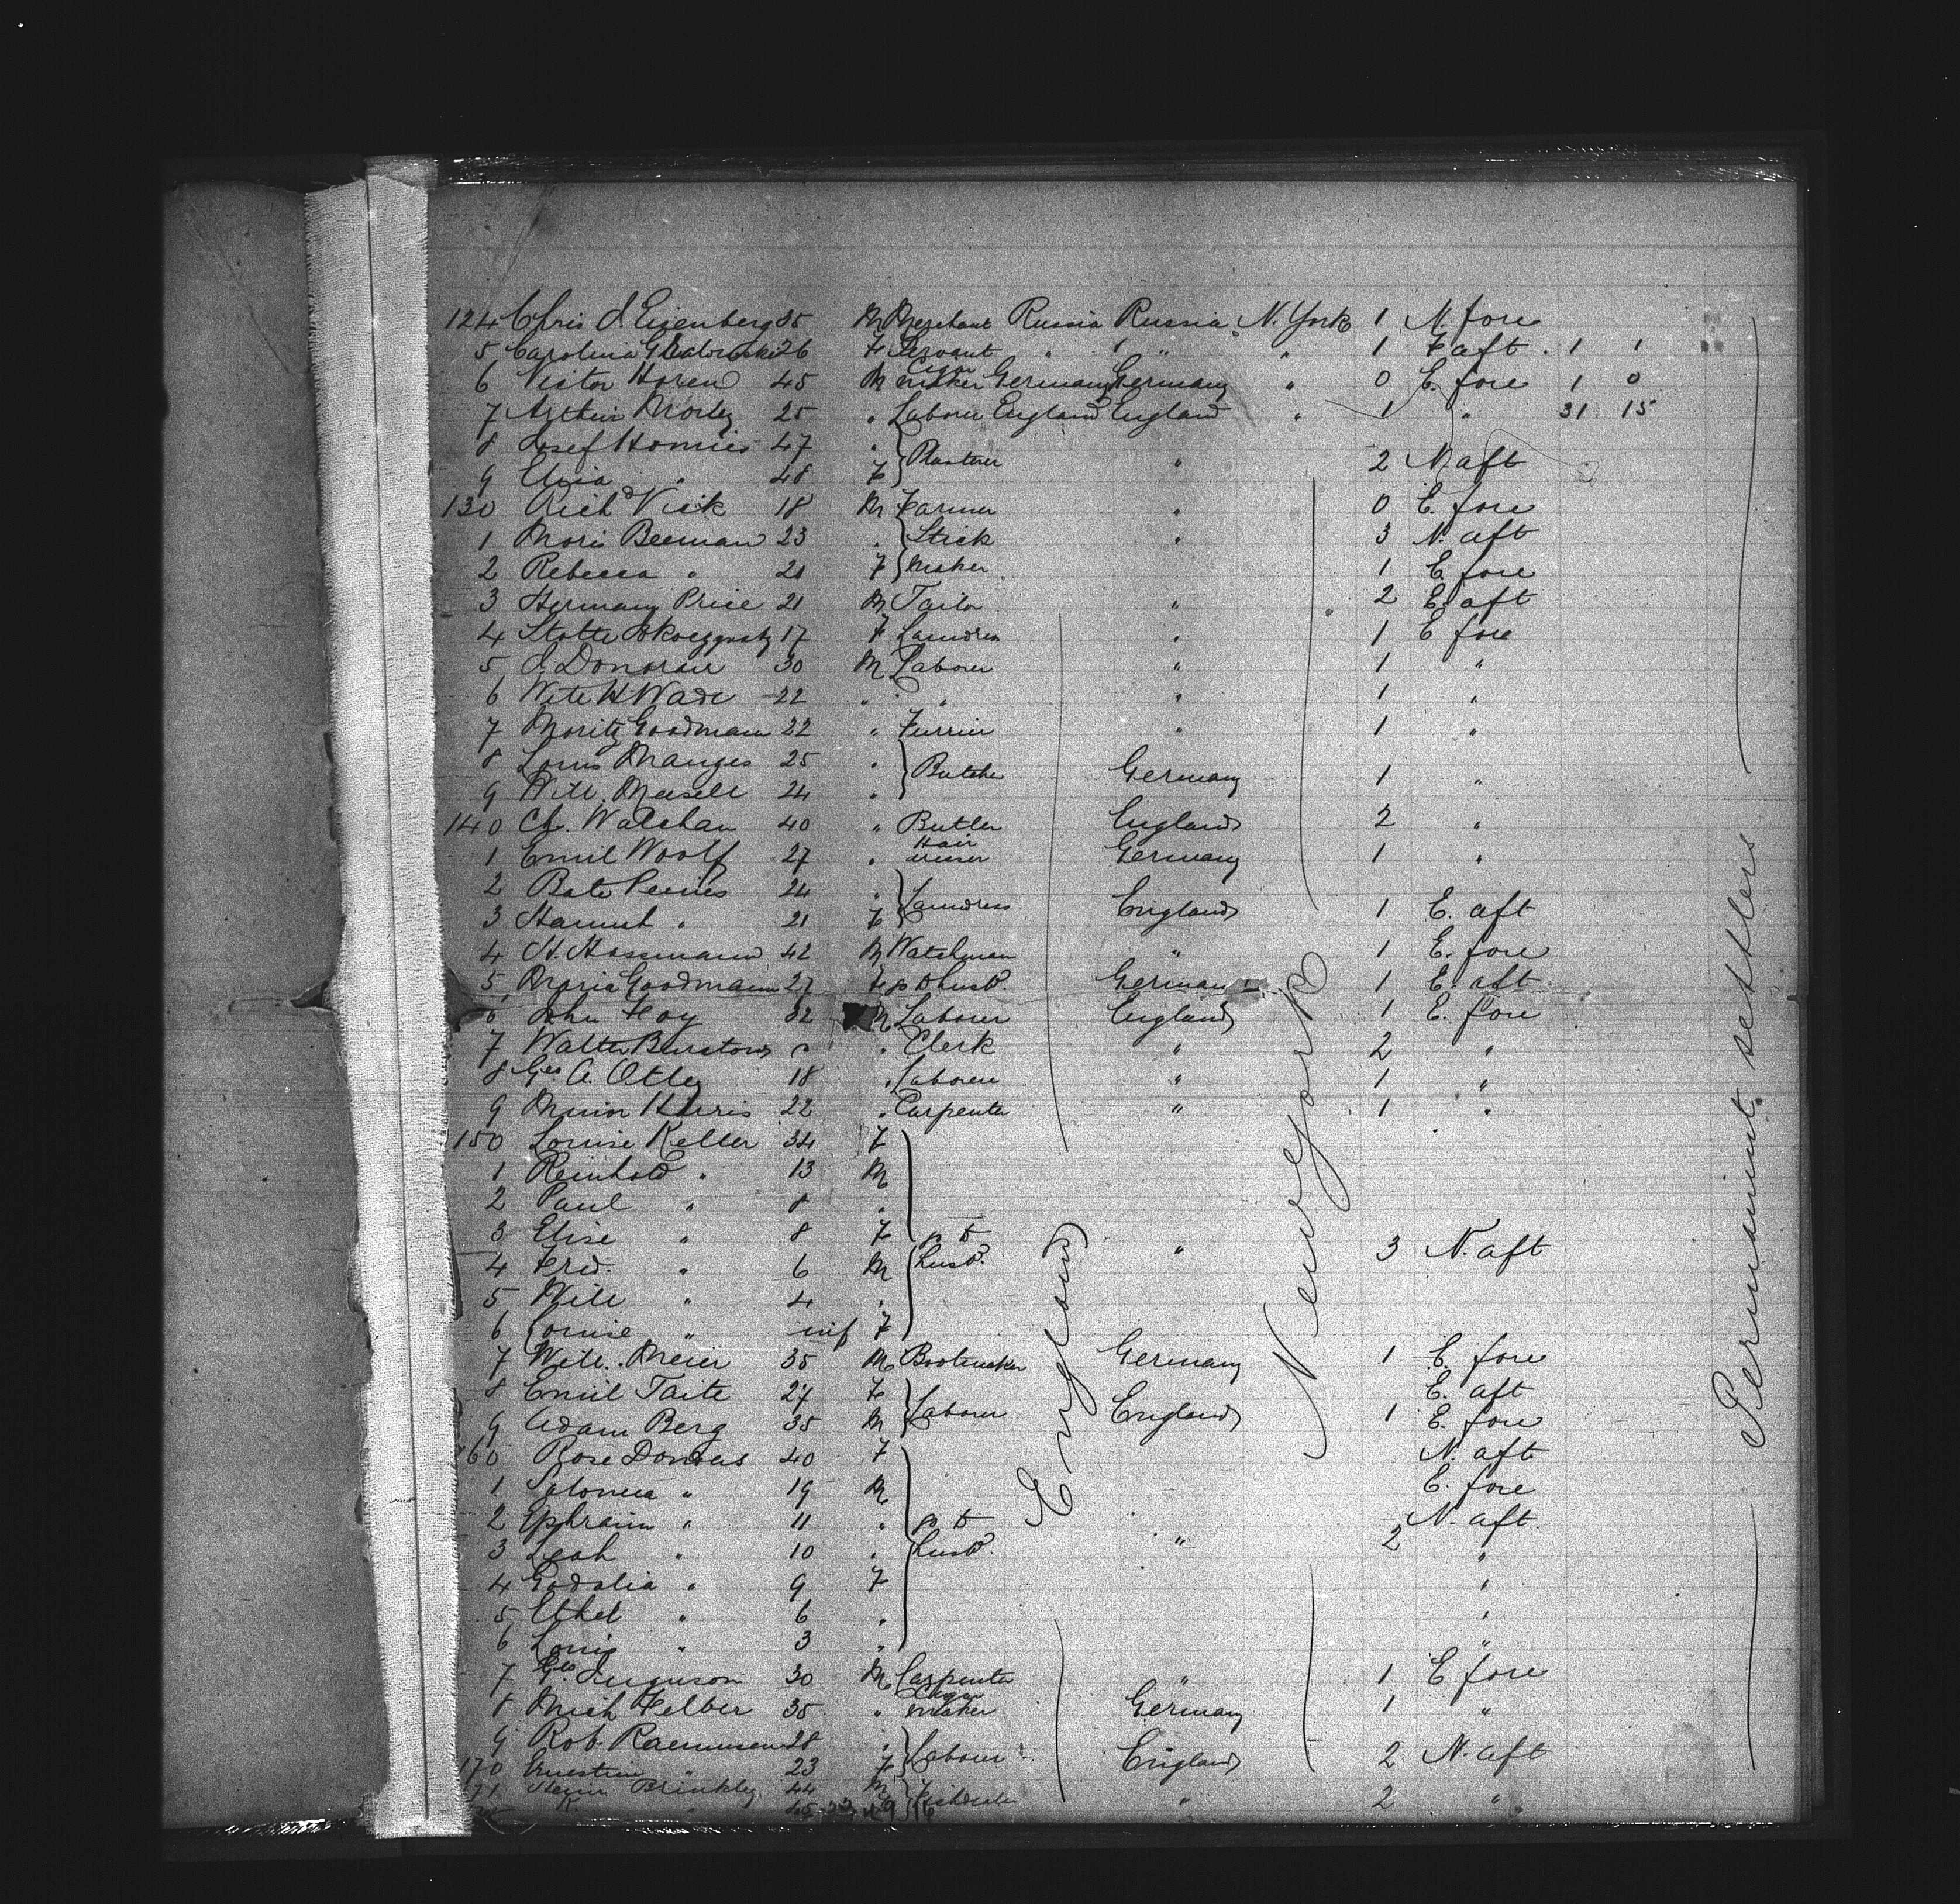 124 Chris J. Eizenberg 35 M Merchant Russia Russia N. York 1 N. fore
5 Carolina 26 F Servant " " " 1 F aft 1 1
6 Victor Horen 45 M Cigar maker Germany Germany " 0 E. fore 1 0
7 Arthur Morley 25 " Laborer England England " 1 " 31 15
8 Josef Homies 47 "
9 Elisa " 48 F Plasterer " 2 N. aft
130 Richd Vick 18 M Farmer " 0 E. fore
1 Mori Beeman 23 " Stick " 3 N. aft
2 Rebecca " 21 F Maker 1 E. fore
3 Hermann Price 21 M Tailor " 2 E. aft
4 17 F Laundress " 1 E fore
5 J. Donovan 30 M Laborer " 1 "
6 W Wade 22 " " " 1 "
7 Moritz Goodmann 22 " Furrier " 1 "
8 Louis Manges 25 "
9 Will. Meisell 24 " Butcher Germany 1 "
140 Ch. Walshan 40 " Butler England 2 "
1 Emil Woolf 27 " Hair dresser Germany 1 "
2 24 "
3 " 21 F Laundress England 1 E. aft
4 H. Hossmann 42 M Watchman " 1 E. fore
5 Maria Goodmann 27 F p to husbd. Germany 1 E. aft
6 John Foy 32 M Laborer England 1 E. fore
7 Walter Burstow " Clerk " 2 "
8 Geo A. Otley 18 " Laborer " 1 "
9 Harris 22 " Carpenter " 1 "
150 Louise Keller 34 F
1 Reinhold " 13 M
2 Paul " 8 "
3 Elise " 8 F p to
4 Fred. " 6 M husbd. " 3 N. aft
5 Will " 4 "
6 Louise " inf F
7 Will. Meier 35 M Bootmaker Germany 1 E. fore
8 Emil Taite 27 F E. aft
9 Adam Berg 35 M Laborer England 1 E. fore
160 Rose 40 F N. aft
1 " 19 M E. fore
2 Ephraim " 11 " p to N. aft
3 Leah " 10 " husbd. " 2 "
4 Godalia " 9 F "
5 Ethel " 6 " "
6 Louis " 3 " "
7 Geo Ferguson 30 M Carpenter " 1 E fore
8 Mich Felber 35 " Cigar maker Germany 1 "
9 Rob. Rasmussen 28 "
170 Ernestine " 23 F Laborer England 2 N. aft
171 Brinkley 44 M
" 45 " 2 "
England
New York
Permanent settlers